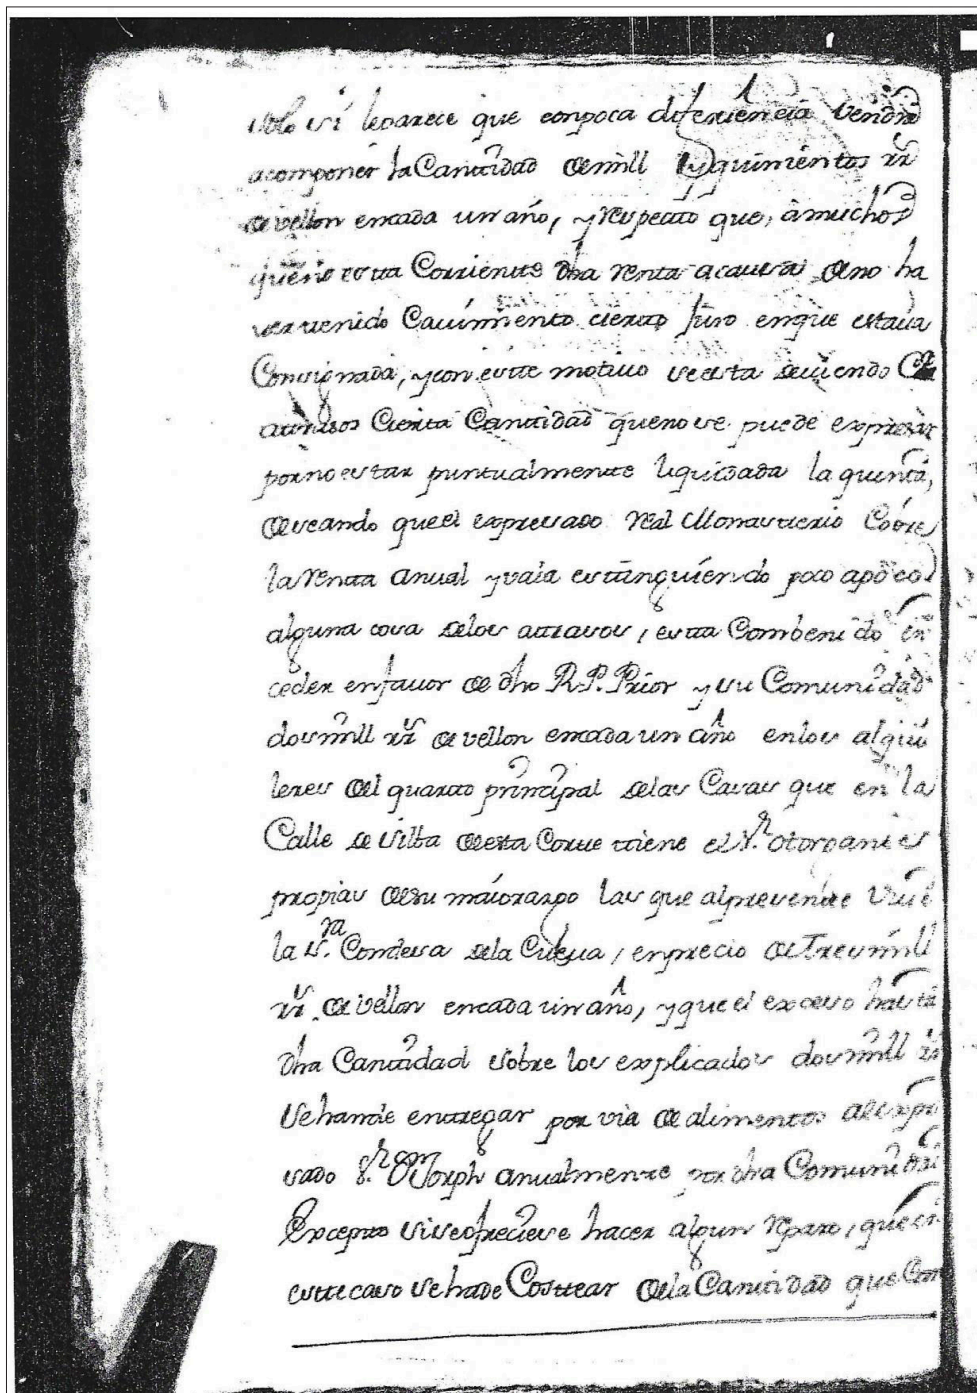 solo si le parece que conpoca diferiencia vendrá
acomponer la Cantidad de mill y quinientos rrs
de vellon encada un año, y respecto que, à muchos
que no esta Corriente dha renta acausa de no ha
ver tenido Cavimiento cierto Juro enque estava
Consignada, y con este motivo se esta deviendo de
atrasos Cierta Cantidad que no se puede expresar
por no estar puntualmente liquidada la quenta,
deseando que el expresado Real Monasterio Cobre
la renta anual y vaia estinguiendo poco apoco
alguna cosa delos atrasos, esta Combenido en
ceder enfavor de dho R. P. Prior y su Comunidad
dosmill rrs de vellon encada un año enlos alqui
leres del quarto principal delas Casas que en la
Calle de Silba de esta Corte tiene el Sr. otorgante
propias de su maiorazgo las que alpresente vive
la Sra. Condesa dela, en precio de Tresmill
rrs. de vellon encada un año, y que el exceso hasta
dha Cantidad sobre los explicados dosmill rrs
se hande entregar por via de alimentos al expre
sado Sr. Dn Joseph anualmente por dha Comunidad
Excepto si se ofreciese hacer algun reparo, que en
este caso se hade Costtear dela Cantidad que Com